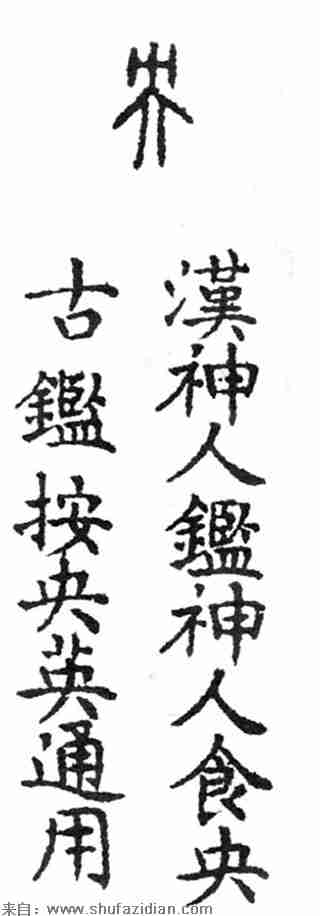 央
漢神人鑑神人食央
古鑑按央英通用
来自：www.shufazidian.com